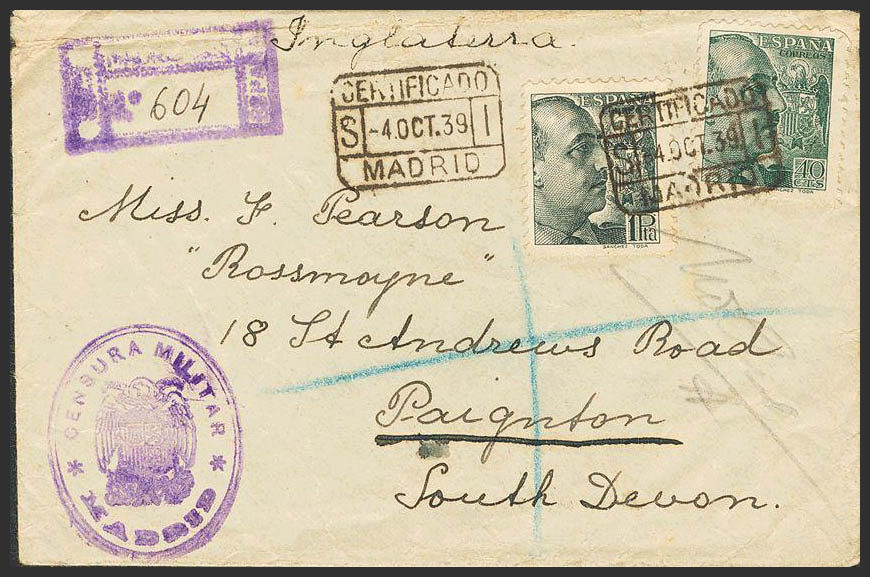 Inglaterra.
Nº 604
CERTIFICADO
S -4.OCT.39 I
MADRID
ESPAÑA
1 Pta
SANCHEZ TODA
CERTIFICADO
-4.OCT.39 I
MADRID
ESPAÑA
CORREOS
40
CTS
SANCHEZ TODA
Miss. F. Pearson
"Rossmoyne"
18 St Andrews Road
Paignton
South Devon.
* CENSURA MILITAR *
MADRID